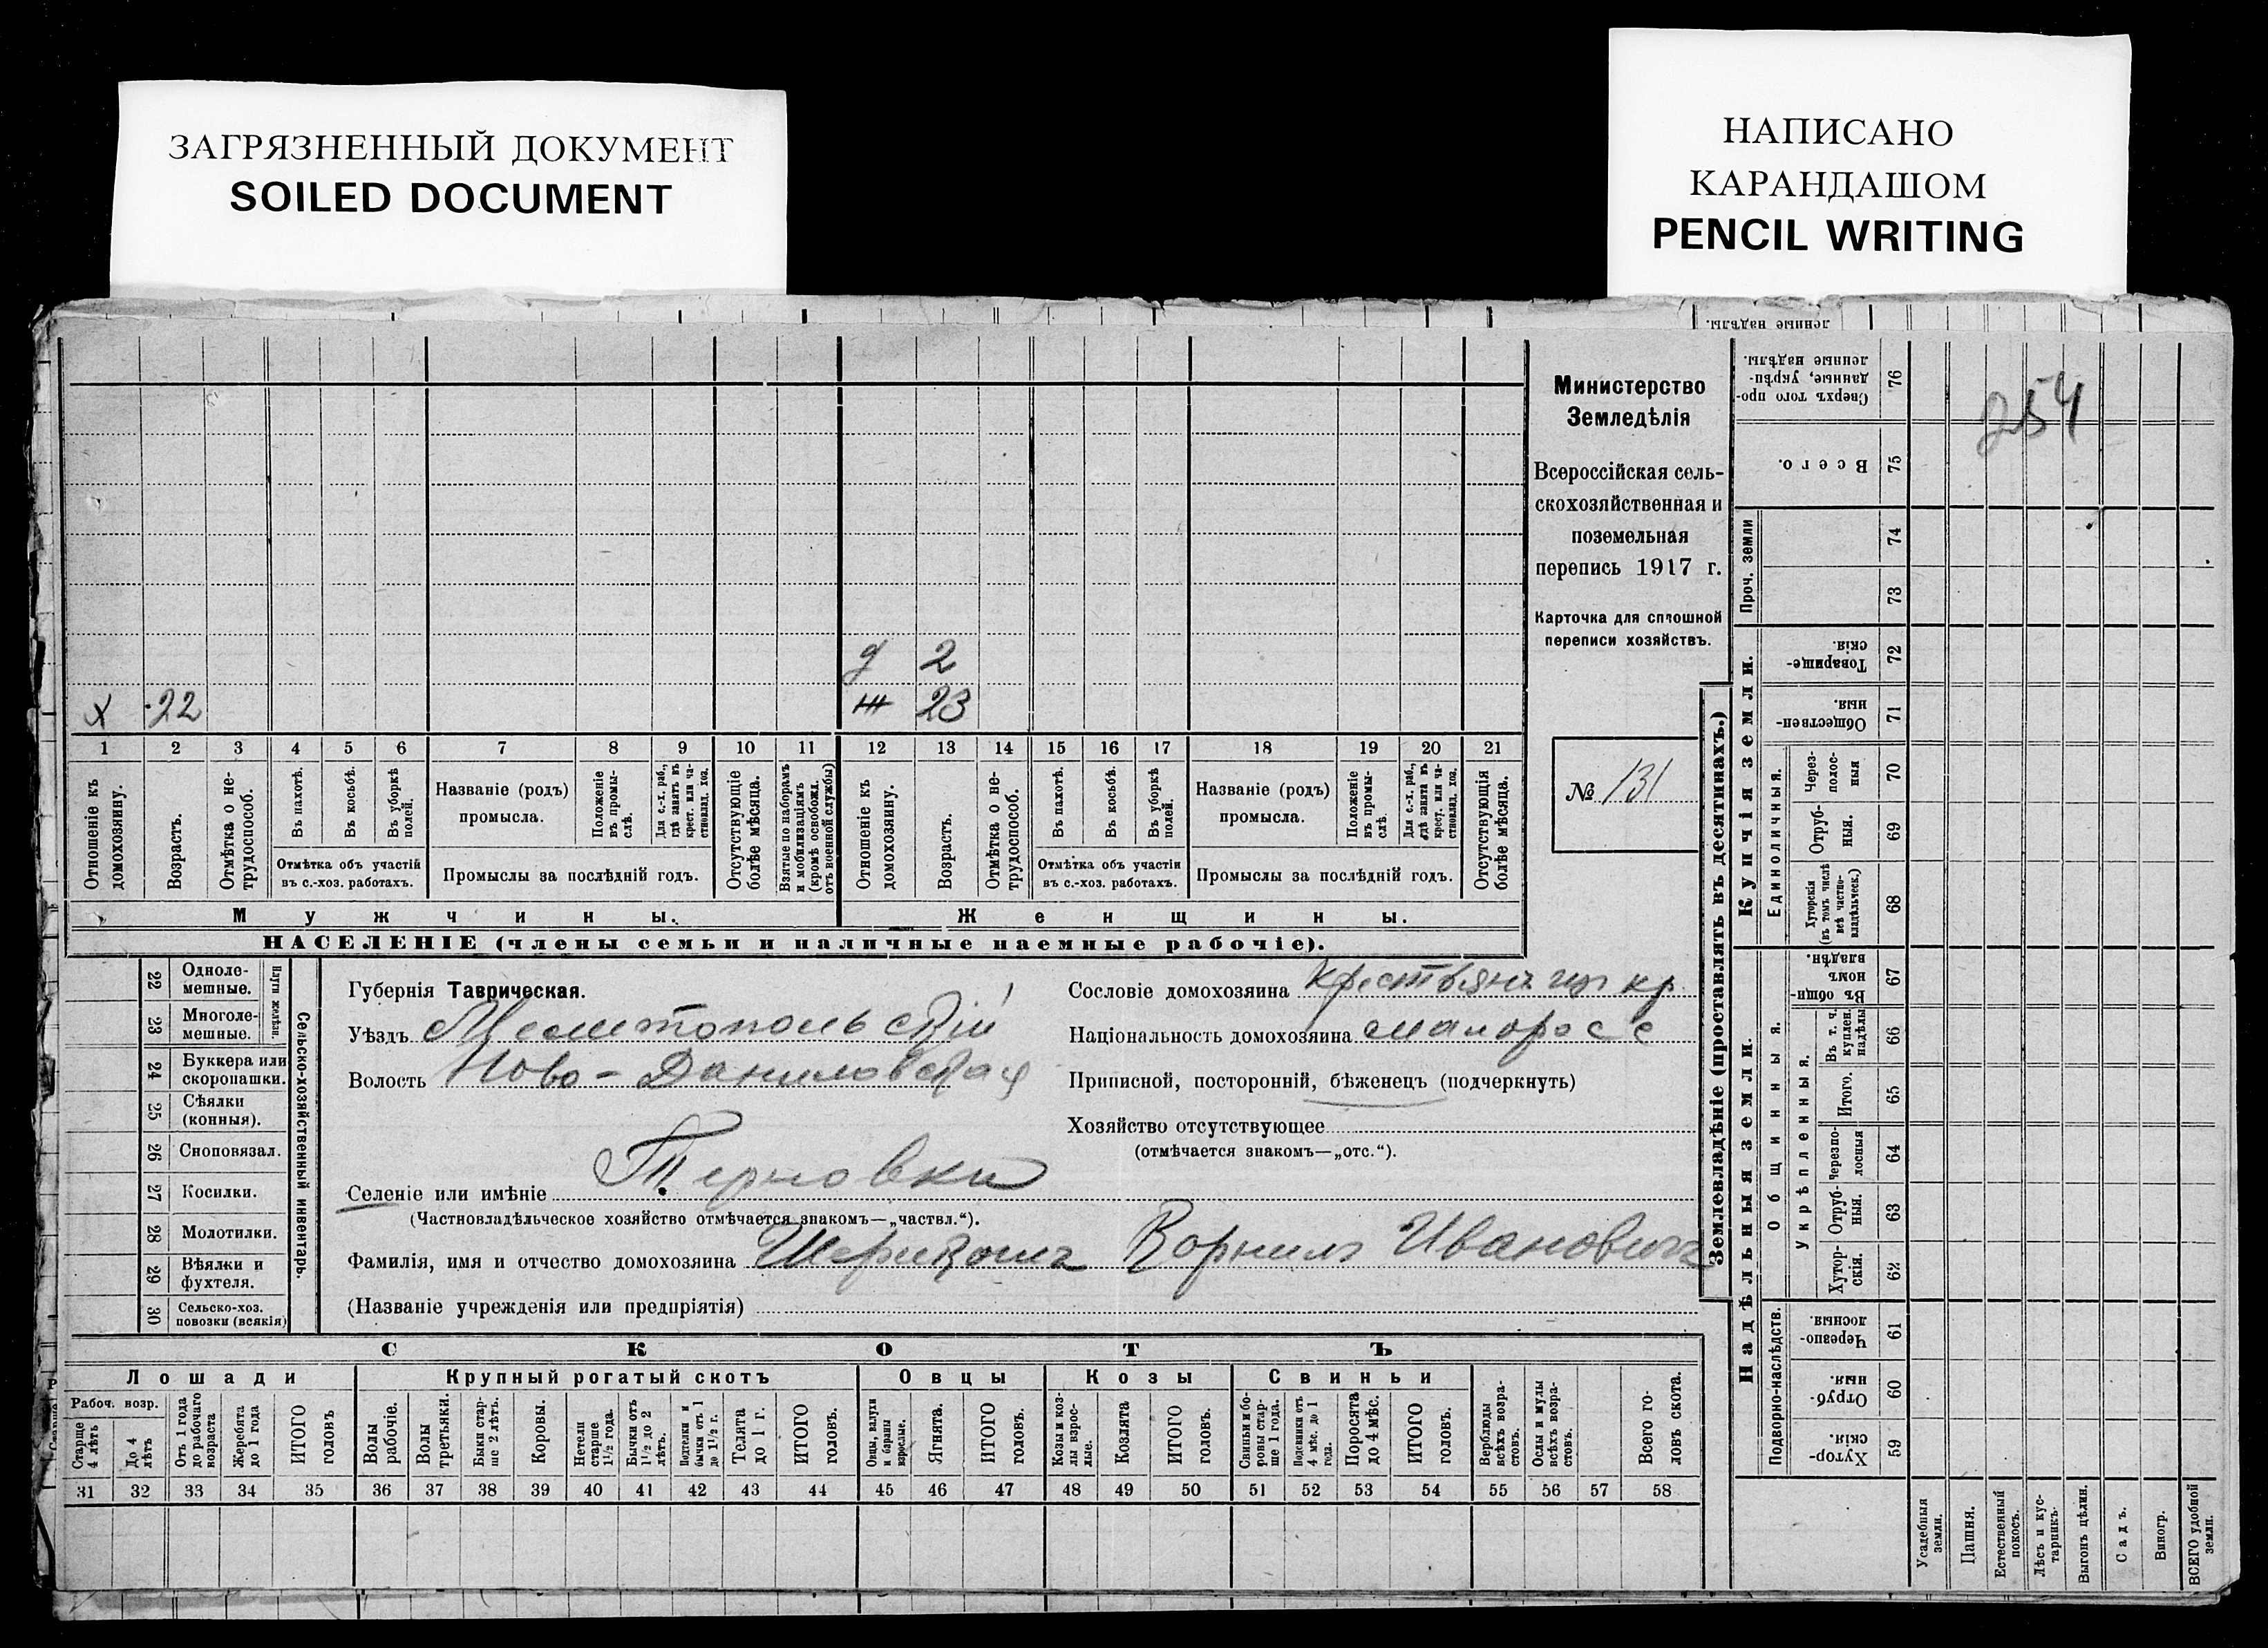 ЗАГРЯЗНЕННЫЙ ДОКУМЕНТ
SOILED DOCUMENT
НАПИСАНО
КАРАНДАШОМ
PENCIL WRITING
ленные надѣлы.
254
Министерство
Земледѣлія
Всероссійская сель-
скохозяйственная и
поземельная
перепись 1917 г.
Карточка для сплошной
переписи хозяйствъ.
№ 131
д 2
х 22 ж 23
1 2 3 4 5 6 7 8 9 10 11 12 13 14 15 16 17 18 19 20 21
Отношеніе къ домохозяину.
Возрастъ.
Отмѣтка о не-трудоспособ.
Въ пахотѣ.
Въ косьбѣ.
Въ уборкѣ полей.
Отмѣтка объ участіи
въ с.-хоз. работахъ.
Названіе (родъ)
промысла.
Положеніе въ промы-слѣ.
Для с.-х. раб., гдѣ занятъ въ крест. или ча-стновлад. хоз.
Промыслы за послѣдній годъ.
Отсутствующіе болѣе мѣсяца.
Взятые по наборамъ и мобилизаціямъ (кромѣ освобожд. отъ военной службы)
Отношеніе къ домохозяину.
Возрастъ.
Отмѣтка о не-трудоспособ.
Въ пахотѣ.
Въ косьбѣ.
Въ уборкѣ полей.
Отмѣтка объ участіи
въ с.-хоз. работахъ.
Названіе (родъ)
промысла.
Положеніе въ промы-слѣ.
Для с.-х. раб., гдѣ занята въ крест. или ча-стновлад. хоз.
Промыслы за послѣдній годъ.
Отсутствующія болѣе мѣсяца.
Мужчины. Женщины.
НАСЕЛЕНІЕ (члены семьи и наличные наемные рабочіе).
22 Одноле-мешные.
23 Многоле-мешные.
Плуги желѣзн.
24 Буккера или скоропашки.
25 Сѣялки (конныя).
26 Сноповязал.
27 Косилки.
28 Молотилки.
29 Вѣялки и фухтеля.
30 Сельско-хоз. повозки (всякія)
Сельско-хозяйственный инвентарь.
Губернія Таврическая.
Уѣздъ Мелитопольскій
Волость Ново-Даниловская
Сословіе домохозяина крестьянинъ кр
Національность домохозяина малоросс
Приписной, посторонній, бѣженецъ (подчеркнуть)
Хозяйство отсутствующее
(отмѣчается знакомъ—„отс.“).
Селеніе или имѣніе Терновка
(Частновладѣльческое хозяйство отмѣчается знакомъ—„частвл.“).
Фамилія, имя и отчество домохозяина Корнилъ Ивановичъ
(Названіе учрежденія или предпріятія)
СКОТЪ
Лошади Крупный рогатый скотъ Овцы Козы Свиньи
Рабоч. возр.
Старше 4 лѣтъ
До 4 лѣтъ
Отъ 1 года до рабочаго возраста
Жеребята до 1 года
ИТОГО головъ
Волы рабочіе.
Волы третьяки.
Быки стар-ше 2 лѣтъ.
Коровы.
Нетели старше 1½ года.
Бычки отъ 1½ до 2 лѣтъ.
Подтелки и бычки отъ 1 до 1½ г.
Телята до 1 г.
ИТОГО головъ.
Овцы, валухи и бараны взрослые.
Ягнята.
ИТОГО головъ.
Козы и коз-лы взрос-лые.
Козлята
ИТОГО головъ.
Свиньи и бо-ровы стар-ше 1 года.
Подсвинки отъ 4 мѣс. до 1 года.
Поросята до 4 мѣс.
ИТОГО головъ.
Верблюды всѣхъ возра-стовъ.
Ослы и мулы всѣхъ возра-стовъ.
Всего го-ловъ скота.
31 32 33 34 35 36 37 38 39 40 41 42 43 44 45 46 47 48 49 50 51 52 53 54 55 56 57 58
Землевладѣніе (проставлять въ десятинахъ.)
Сверхъ того про-данные, укрѣп-ленные надѣлы. 76
Всего. 75
Проч. земли
74
73
Купчія земли.
Товарище-скія. 72
Обществен-ныя. 71
Единоличныя.
Через-полос-ныя 70
Отруб-ныя. 69
Хуторскія (въ томъ числѣ всѣ частно-владѣльческ.) 68
Надѣльныя земли.
Общинныя.
Въ общи-номъ владѣн. 67
Укрѣпленныя.
Въ т. ч. куплен. надѣлы 66
Итого. 65
Черезпо-лосныя 64
Отруб-ныя. 63
Хутор-скія. 62
Подворно-наслѣдств.
Черезпо-лосныя. 61
Отруб-ныя. 60
Хутор-скія. 59
Усадебныя земли.
Пашня.
Естественный покосъ.
Лѣсъ и кус-тарникъ
Выгонъ цѣлин.
Садъ.
Виногр.
ВСЕГО удобной земли.